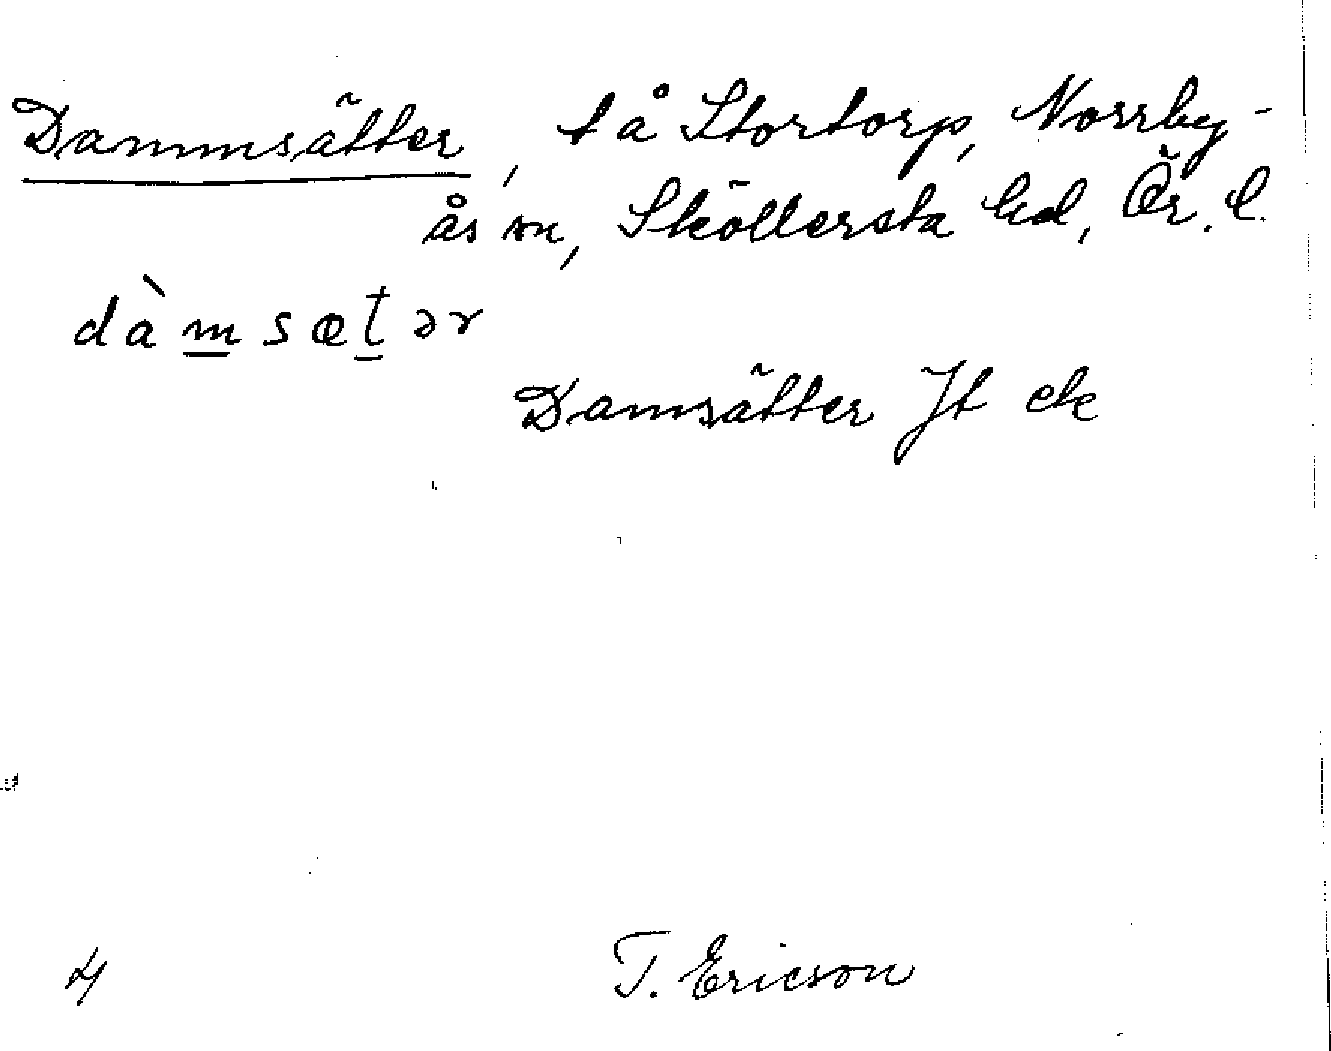 Dammsätter, t å Stortorp, Norrby-
ås sn, Sköllersta hd, Ör. l.
dàm̲sæt̲ər
Damsätter Jt ek
4
T. Ericson